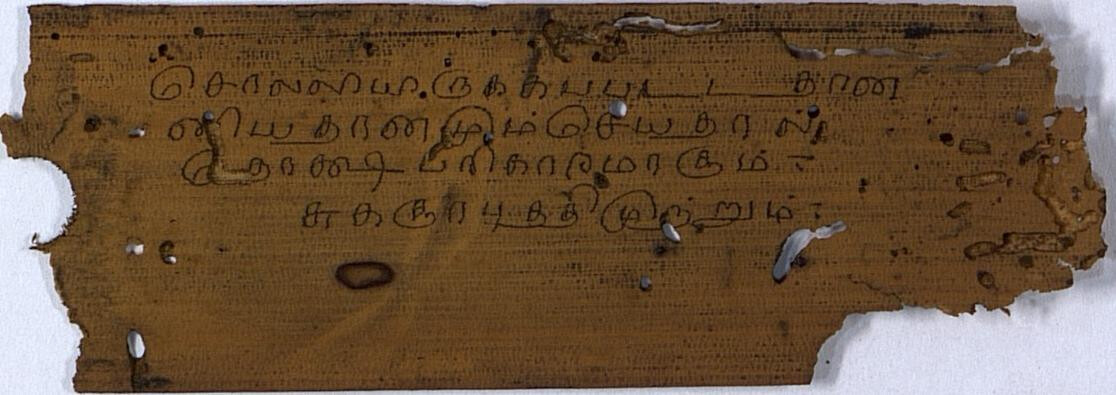 சொலலியிருககபபடட தான
னியதானமும்செயதால்
தோகூடி பரிகாரமாகும்:-
சுககுரபுததிமுற்றும்:-